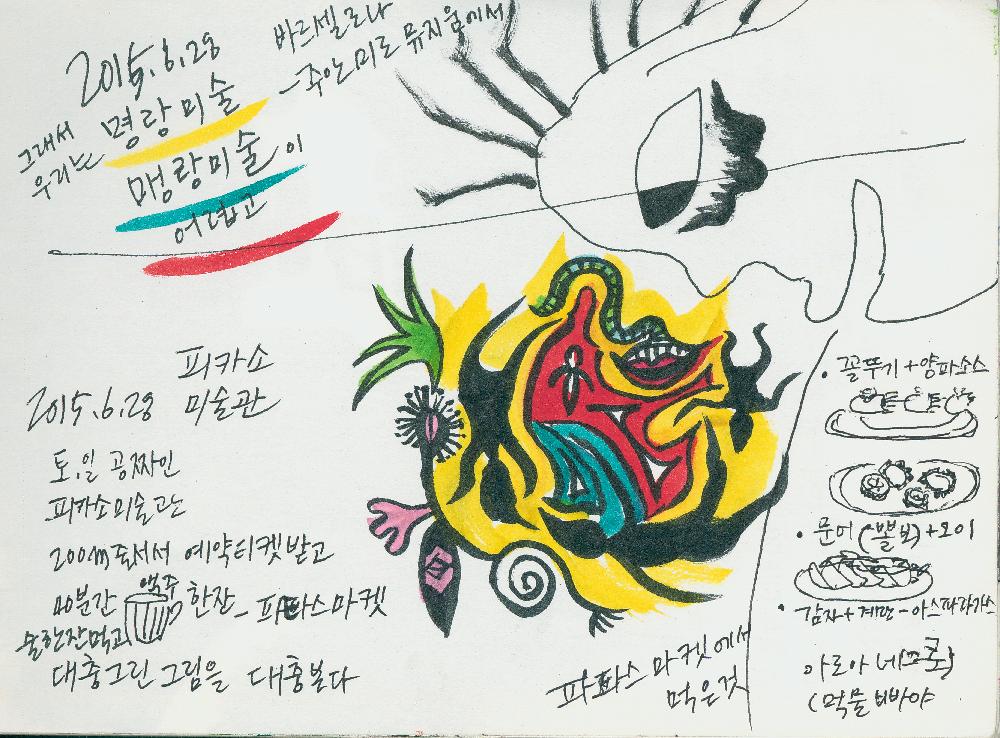 2015.6.28
바르셀로나
-주안미로 뮤지움에서
그래서
우리는
명랑미술
맹랑미술이
어렵고
피카소
2015.6.28 미술관
토,일 공짜인
피카소미술관
200m 줄서서 예약티켓받고
20분간 맥주 한잔 - 파파스마켓
술한잔먹고
대충그린 그림을 대충본다
파파스 마켓에서
먹은것
• 꼴뚜기+양파소스
• 문어(뽈보)+오이
• 감자+계란-아스파라가스
아로아 네그로
(먹물 빠빠야